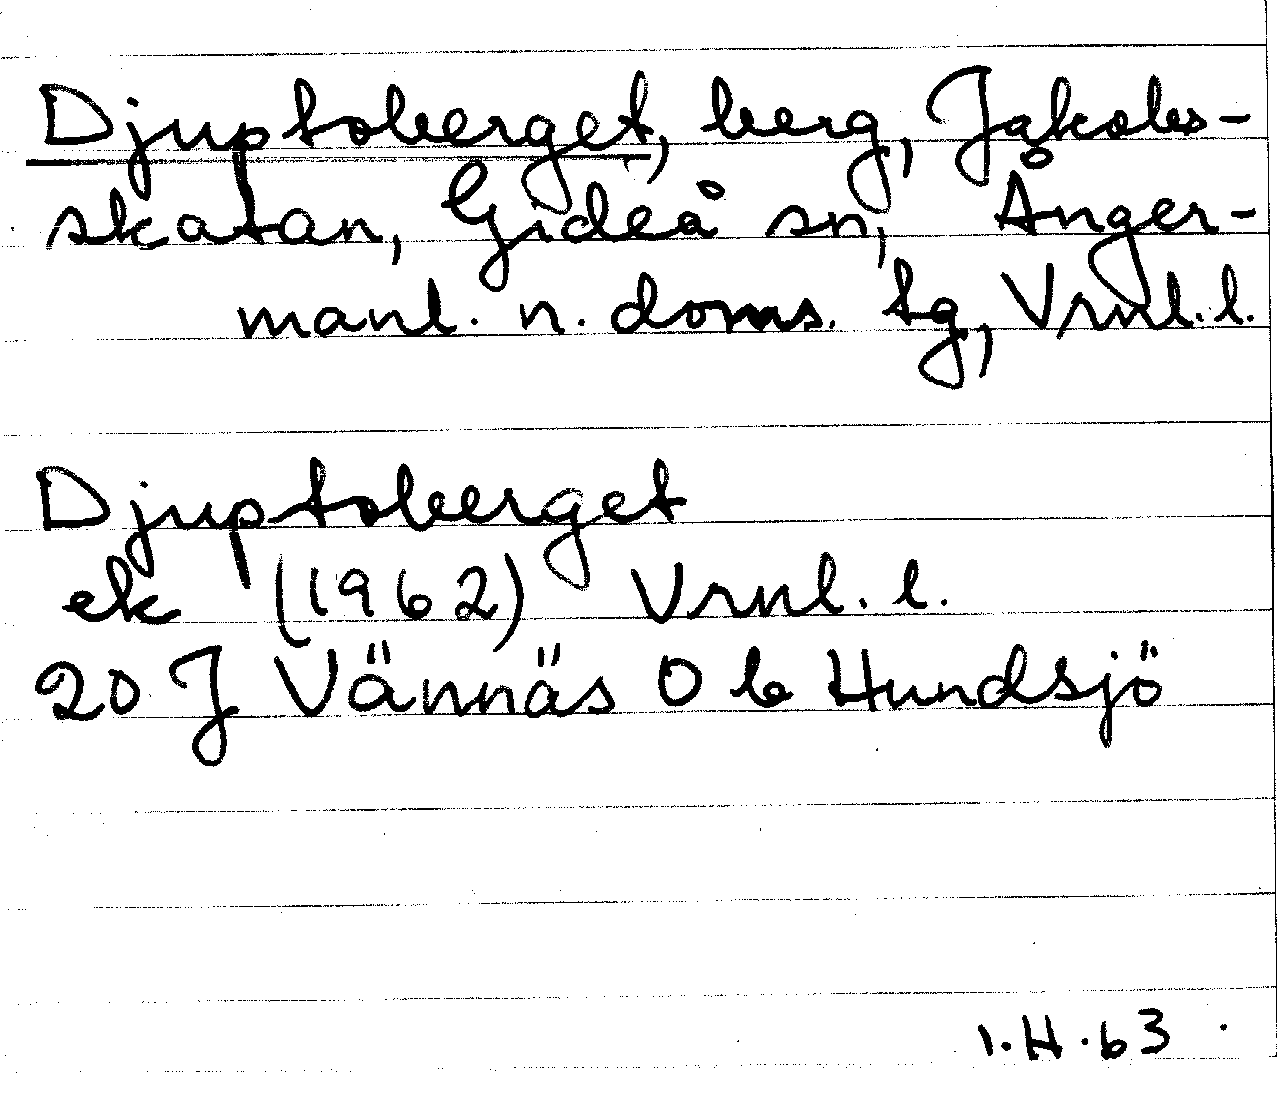 Djuptoberget, berg, Jakobs-
skatan, Gideå sn, Ånger-
manl. n. doms. tg, Vrnl. l.
Djuptoberget
ek (1962) Vrnl. l.
20 J Vännäs 0 b Hundsjö
1.H.63